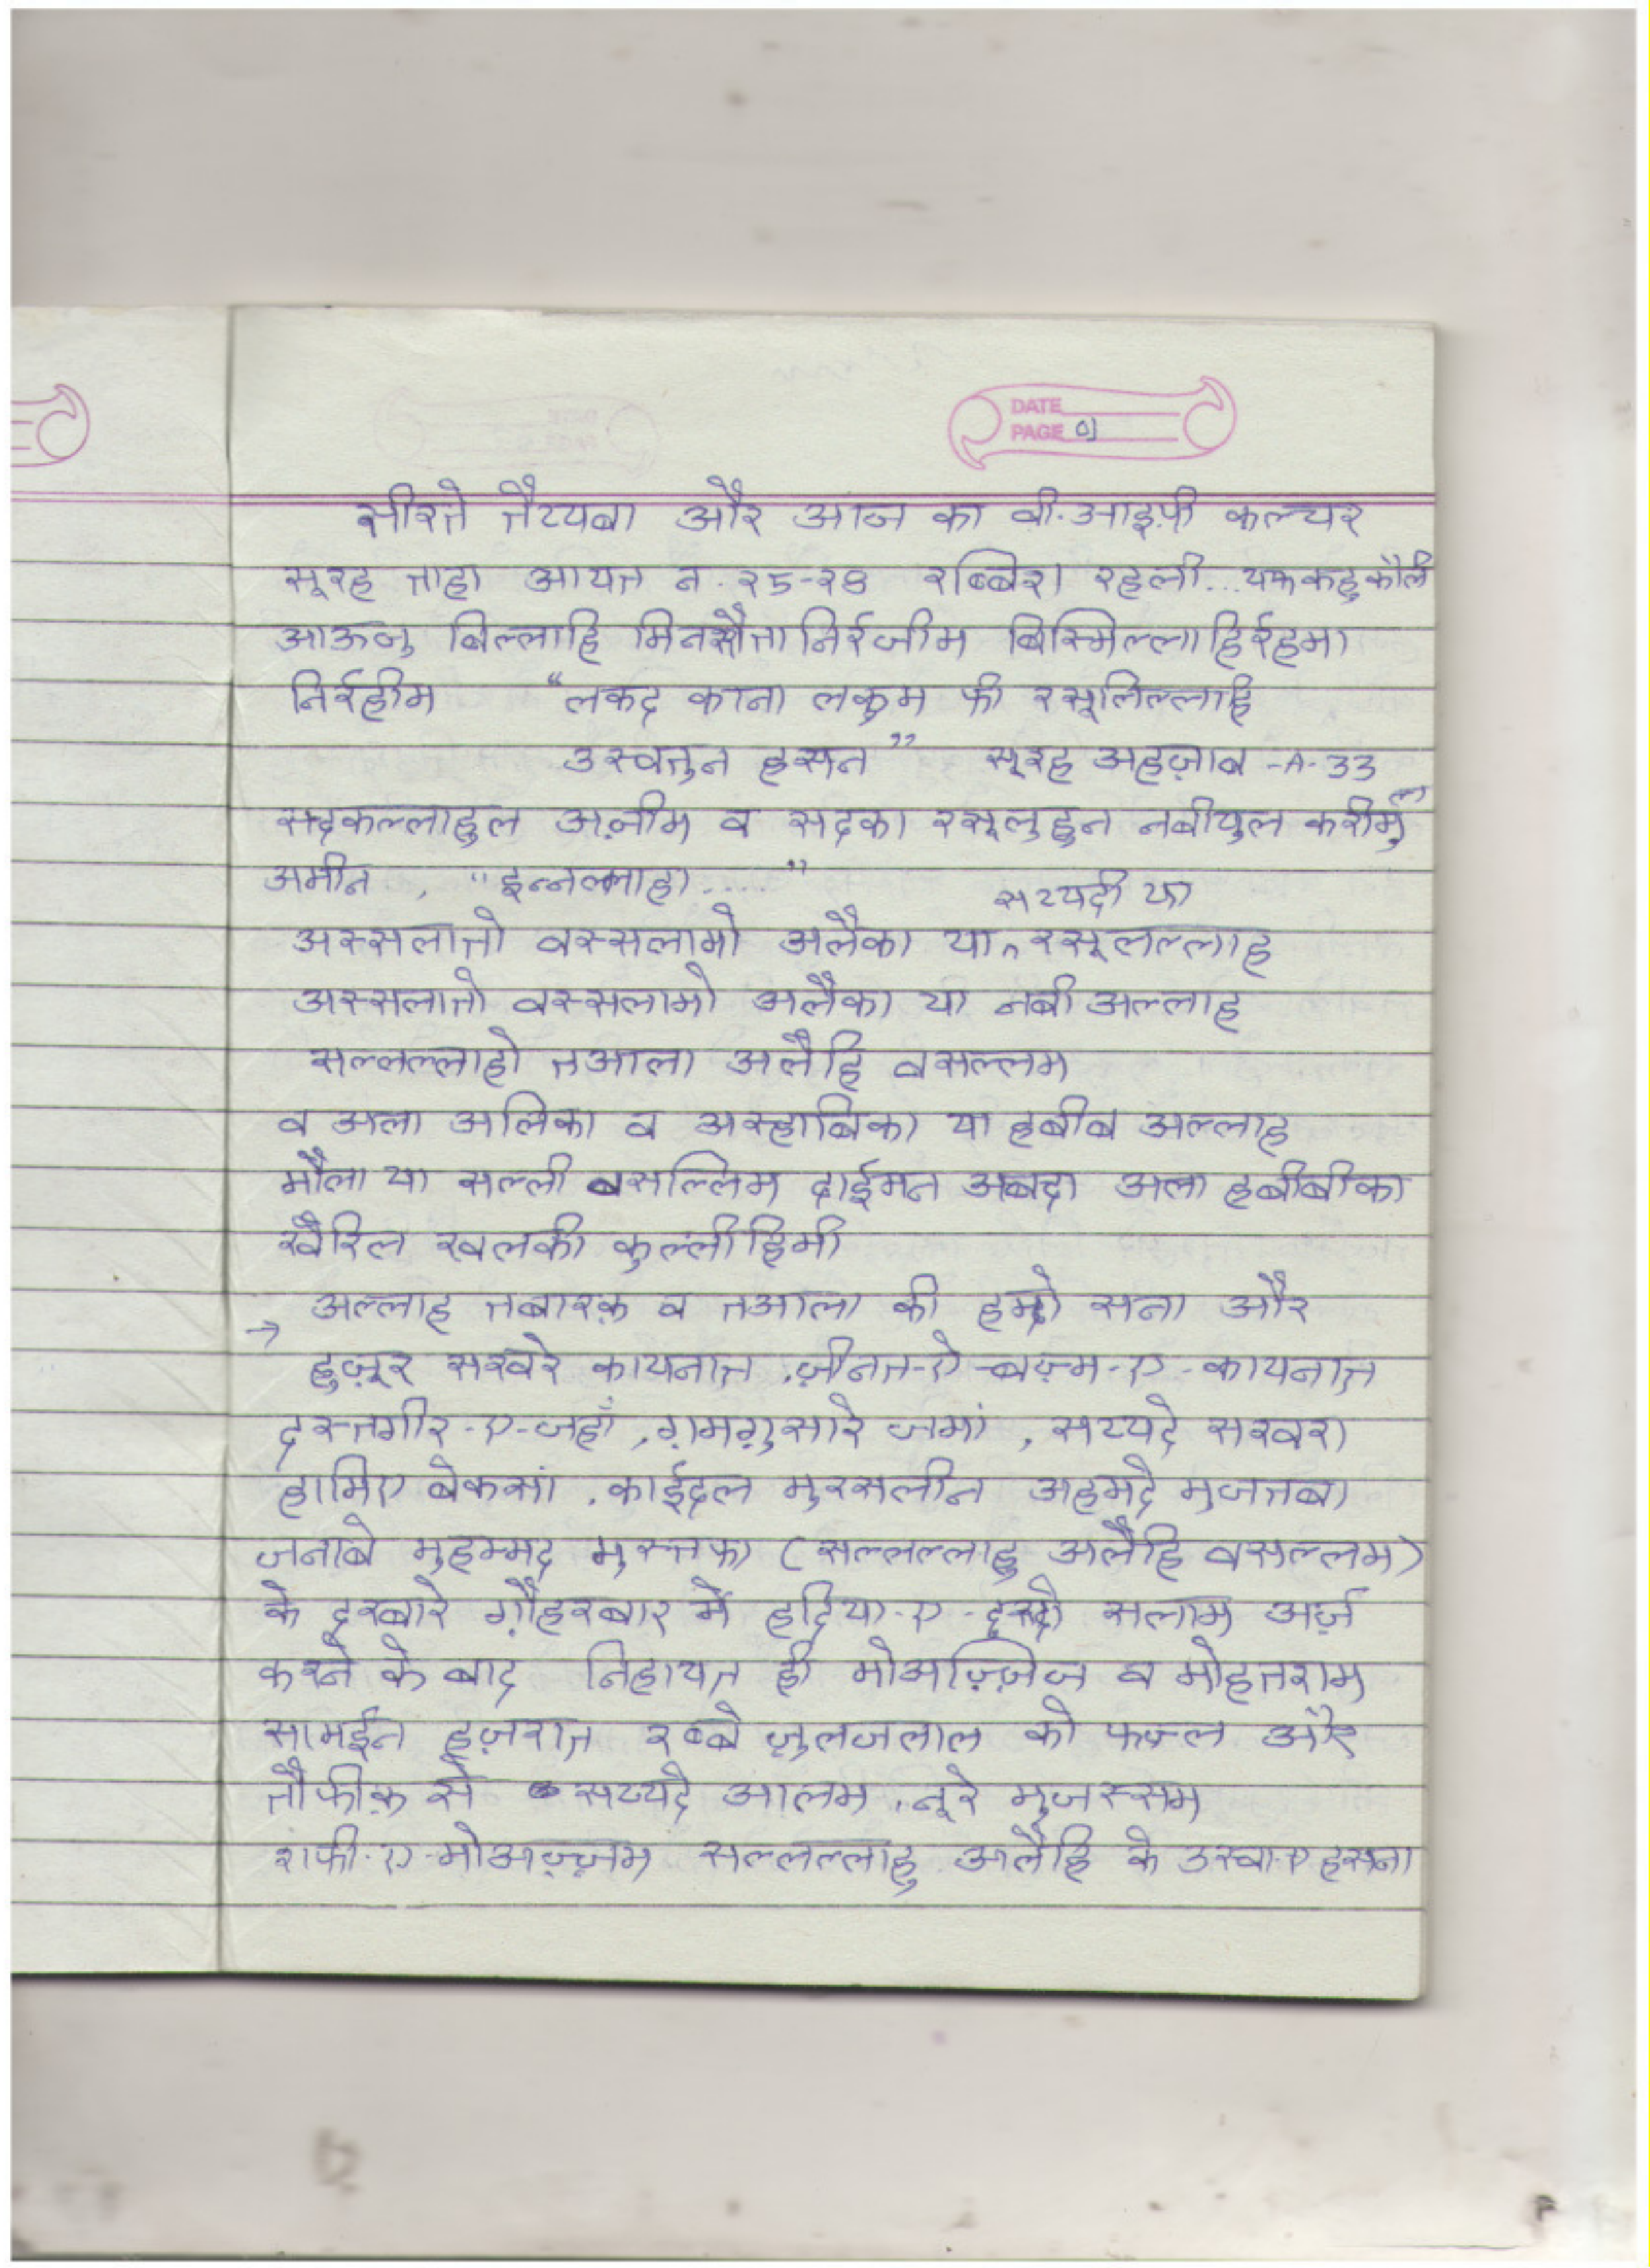 DATE
PAGE 01
सीरते तैय्यबा और आज का वी.आइ.पी कल्चर
सूरह ताहा आयत न. २5-२8 रब्बिश रहली... यफकहु कौली
आऊजु बिल्लाहि मिनशैता निर्रजीम बिस्मिल्लाहिर्रहमा
निर्रहीम "लकद काना लकुम फी रसूलिल्लाहि
उस्वतुन हसन" सूरह अहज़ाब -A- 33
सदकल्लाहुल अज़ीम व सदका रसूलुहुन नबीयुल करीमुल
अमीन, "इन्नल्लाहा....."
सय्यदी या
अस्सलातो वस्सलामो अलैका या रसूलल्लाह
अस्सलातो वस्सलामो अलैका या नबी अल्लाह
सल्लल्लाहो तआला अलैहि वसल्लम
व अला अलिका व अस्हाबिका या हबीब अल्लाह
मौला या सल्ली वसल्लिम दाईमन अबदा अला हबीबीका
खैरिल खलकी कुल्लीहिमी
→ अल्लाह तबारक़ व तआला की हम्दो सना और
हुज़ूर सरवरे कायनात, ज़ीनत-ऐ-बज़्म-ए-कायनात
दस्तगीर-ए-जहाँ, ग़मग़ुसारे जमां, सय्यदे सरवरा
हामिए बेकसां, काईदल मुरसलीन अहमदे मुजतबा
जनाबे मुहम्मद मुस्तफा (सल्लल्लाहु अलैहि वसल्लम)
के दरबारे ग़ौहरबार में हदिया-ए-दुरूदो सलाम अर्ज़
करने के बाद निहायत ही मोअज़्ज़िज व मोहतराम
सामईन हज़रात रब्बे ज़ुलजलाल को फज़्ल और
तौफीक़ से सय्यदे आलम, नूरे मुजस्सम
शफी-ए-मोअज़्ज़म सल्लल्लाहु अलैहि के उस्वा-ए हसना